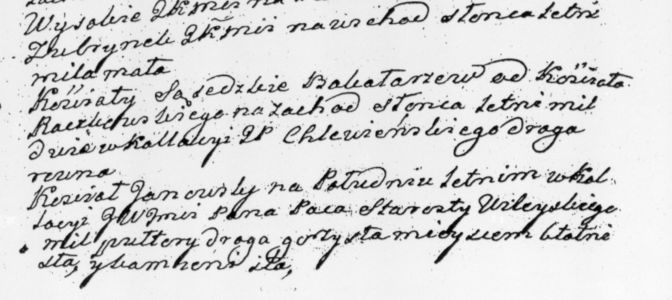 Wysokie JKmść na
Zubryneck JKmść na wschod słońca letni
mila mała
Kościoły Sąsedzkie Bakałarzewo od Kościoła
Raczkowskiego na zachod słońca letni mil
dwie w Kollacyi JP Chlewieńskiego droga
rowna
Kościoł Janowsky na Południu letnim w Kol-
lacyi JWJmść Pana Paca Starosty Wileyskiego
mil pułtory droga gorzysta mieyscem błotni-
sta, y kamieni sta,